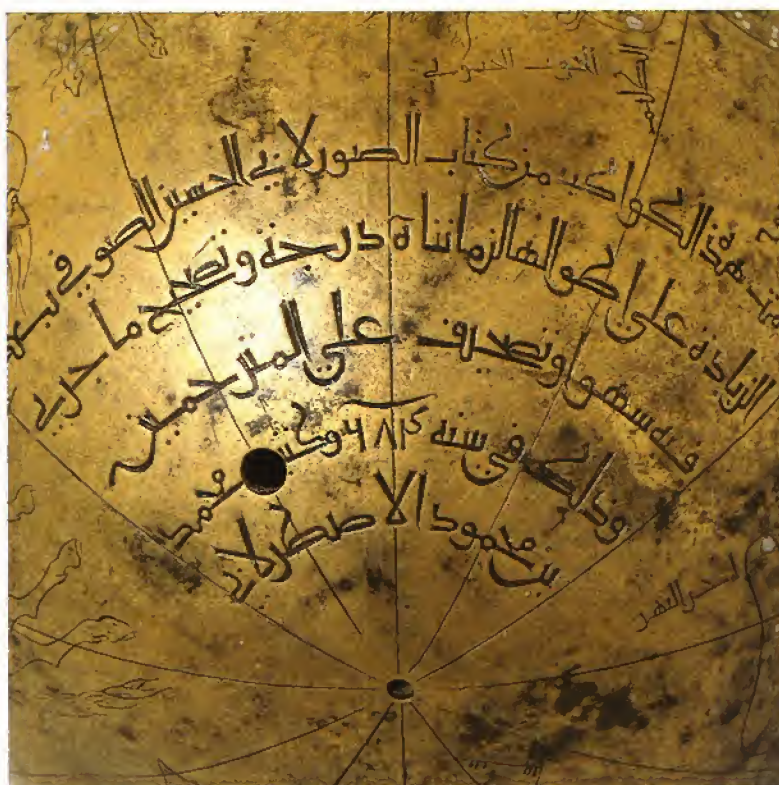 الحوت الجنوبي
هذه الكواكب من كتاب الصور لابي الحسين الصوفي بعد
الزيادة على اطوالها لزماننا ه درجة وتصحيح ما جرى
فيه سهوا وتصحيف على المترجمين
وذلك في سنة ٦٨٤ وكتب محمد
بن محمود الاصطرلابي
اخر النهر